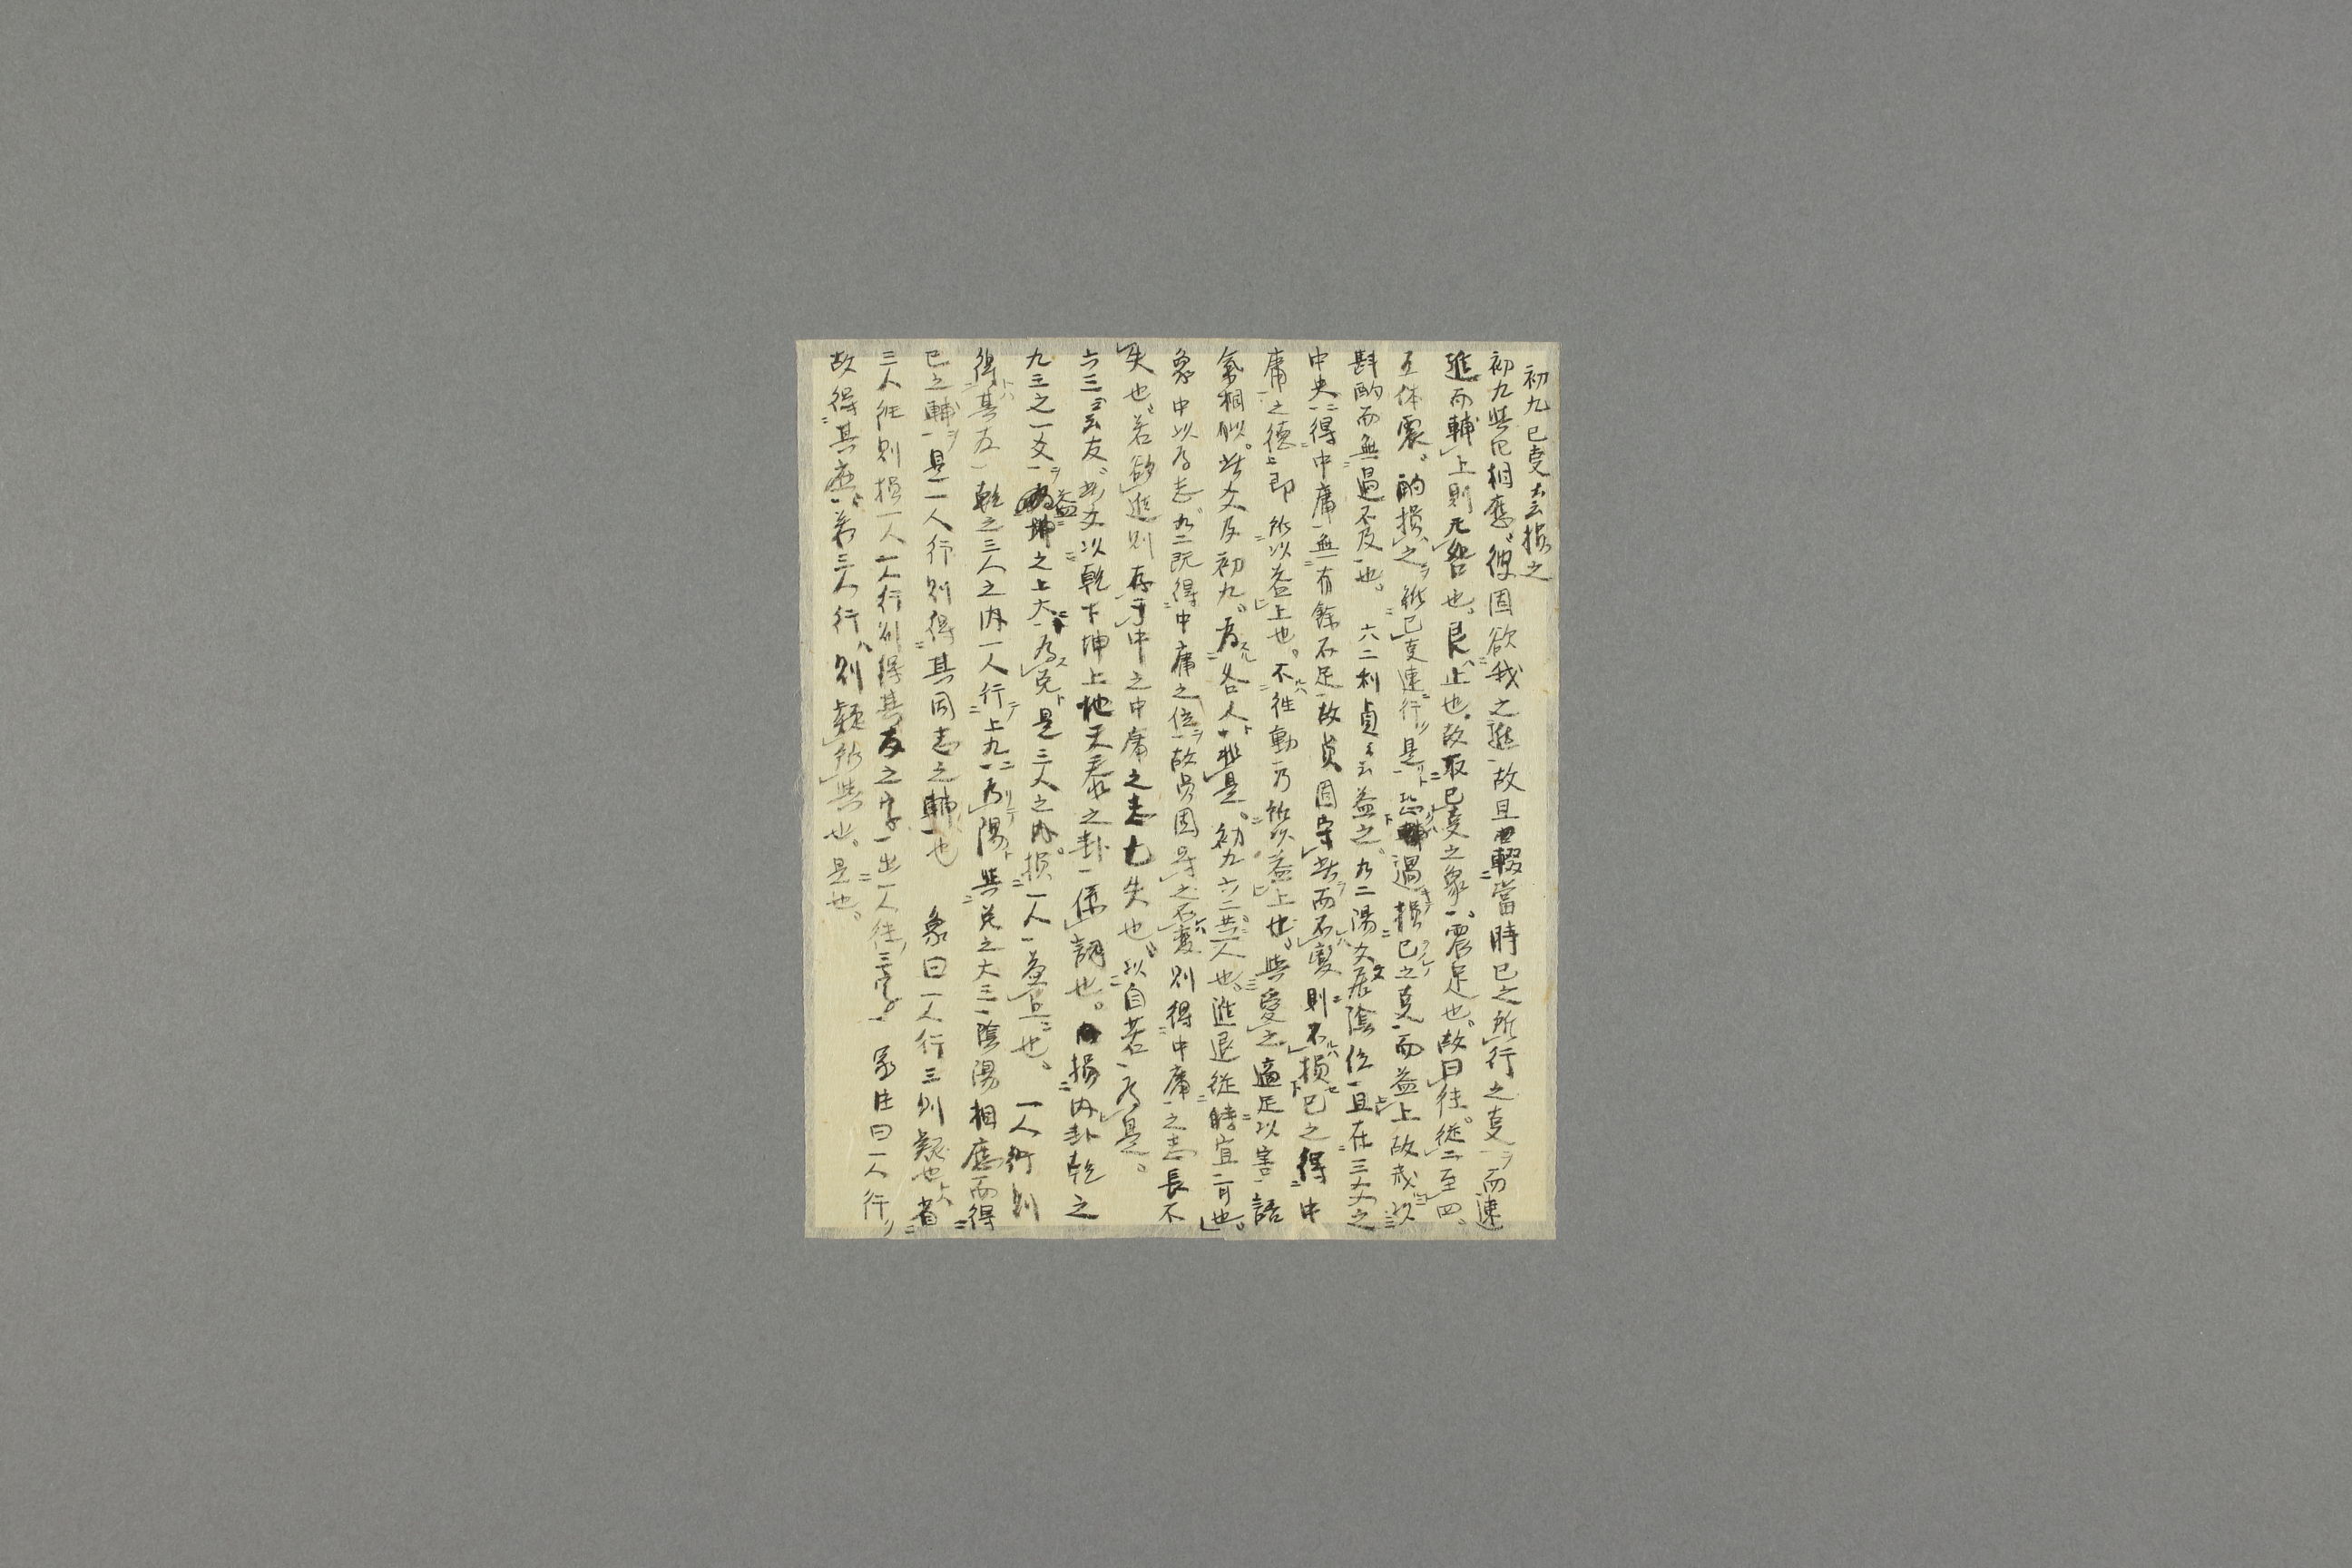 初九已事云損之
初九与四相應彼固欲我之進故且輟當時已之所行之事ヲ而速
進而輔上則无咎也艮ハ止也故取已事之象震足也故曰往從二至四
互体震酌損之ヲ輟已事速行是恐過損已之事而益上故戒以
斟酌而無過不及也 六二利貞云益之九二陽爻居陰位且在三爻之
中央得中庸無有餘不足故貞固守其而不變則不損已之得中
庸之德即所以益上也不往動乃所以益上也与愛之適足以害語
氣相似此爻反初九為各人非是初九六二共一人也進退從時宜可也
象中以為志九二既得中庸之位ヲ故貞固守之不變則得中庸之志長不
失也若欲進則存于中之中庸之志亡失也以自若為是
六三云友此爻以乾下坤上地天泰之卦係詞也損内卦乾之
九三之一爻ヲ益坤之上六為ス兌是三人之内損一人益上也 一人行則
得其友乾之三人之内一人行上九為陽与兌之六三陰陽相應而得
已之輔ヲ是一人行則得其同志之輔也 象曰一人行三則疑也省
三人行則損一人一人行則得其友之字出一人往 象注曰一人行
故得其應若三人行ハ則疑所與也是也